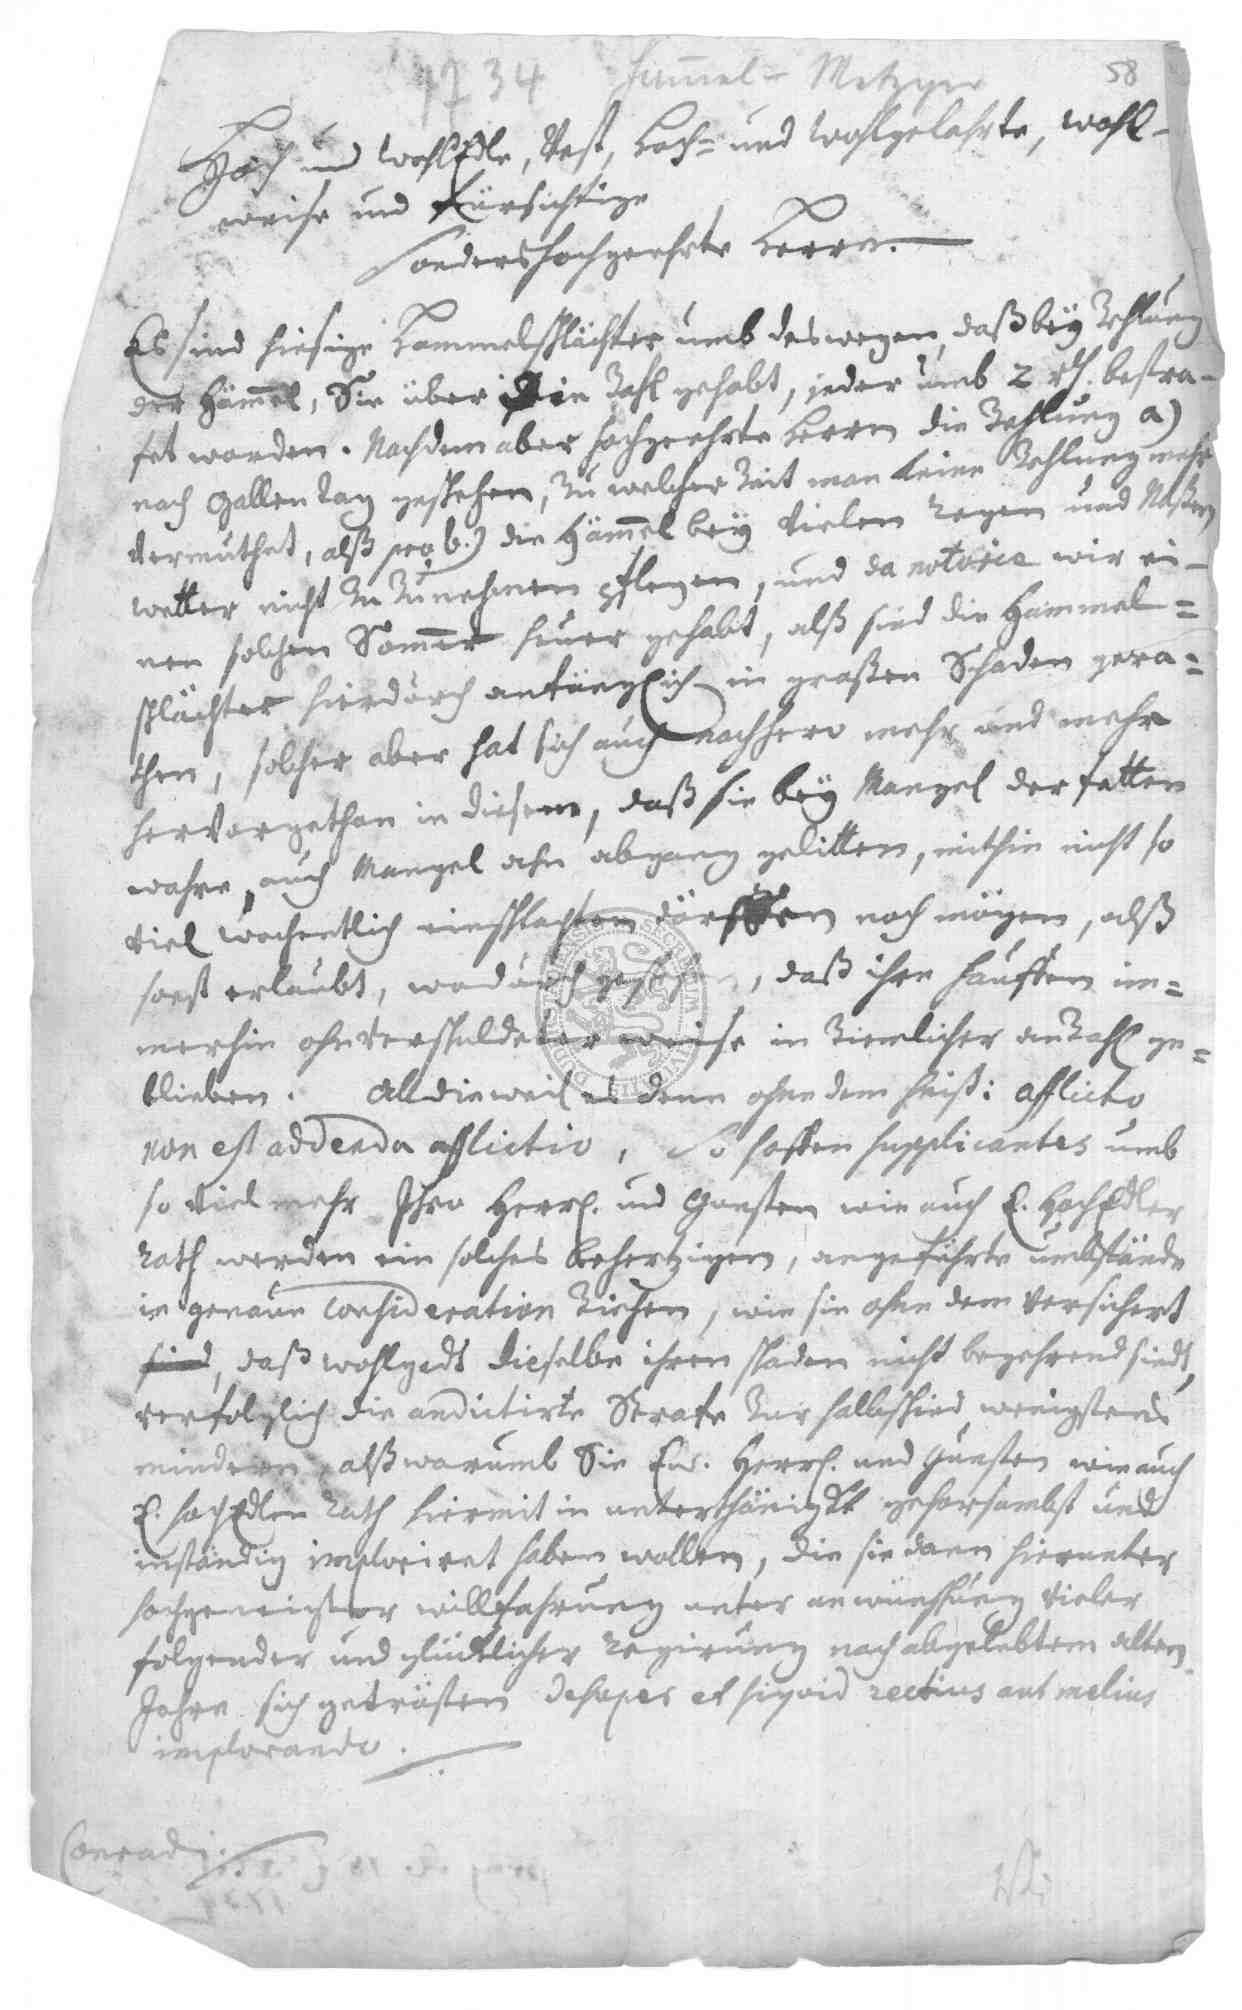 1734 Hammel- Metzger 58
Hoch und WohlEdle, Vest, Hoch- und Wohlgelahrte, Wohl-
weise und Fürsichtige
Sondershochgeehrte Herrn.
Es sind hiesige Hammelschlächter umb deswegen, daß bey Zehlung
der Häm̄el, Sie über die Zahl gehabt, jeder umb 2 rth. bestra-
fet worden. Nachdem aber hochgeehrte Herrn die Zehlung a)
nach Gallentag geschehen, zu welcher Zeit man keine Zehlung mehr
vermuthet, alß pro b.) die Häm̄el bey vielem Regen und Naßem
wetter nicht zu zunehmen pflegen, und da notorie wir ei-
nen solchen Som̄er heuer gehabt, alß sind die Hammel=
schlächter hierdurch anfänglich in großen Schaden gera=
then, solcher aber hat sich auch nachhero mehr und mehr
hervorgethan in diesem, daß sie bey Mangel der fetten
wahre, auch Mangel ahn abgang gelitten, mithin nicht so
viel wochentlich einschlachten dörffen noch mögen, alß
sonst erlaubt, wodurch geschehen, daß ihre hauffen im=
merhin ohnverschuldeter weise in Ziemlicher anzahl ge=
blieben. Alldieweil es denn ohne dem heist: afflicto
non est addenda afflictio, So hoffen supplicantes umb
so viel mehr Ihro Herrl. und Gunsten wie auch E. HochEdler
Rath werden ein solches behertzigen, angeführte umbstände
in genaue Consideration Ziehen, wie sie ohne dem versichert
sind, daß wohlgedt. dieselbe ihren schaden nicht begehrend sindt,
verfolglich die andictirte Strafe Zur halbschied wenigstens
mindern, alß warumb Sie Ew. Herrl. und Gunsten wie auch
E. hochEdlen Rath hiermit in unterthänigkt. gehorsambst und
inständig imploriret haben wollen, die sie dann hierunter
hochgeneigter willfahrung unter anwünschung vieler
folgender und glücklicher Regirung nach abgelebtem alten
Jahre sich getrösten desuper et siquid rectius aut melius
implorando.
Conradi